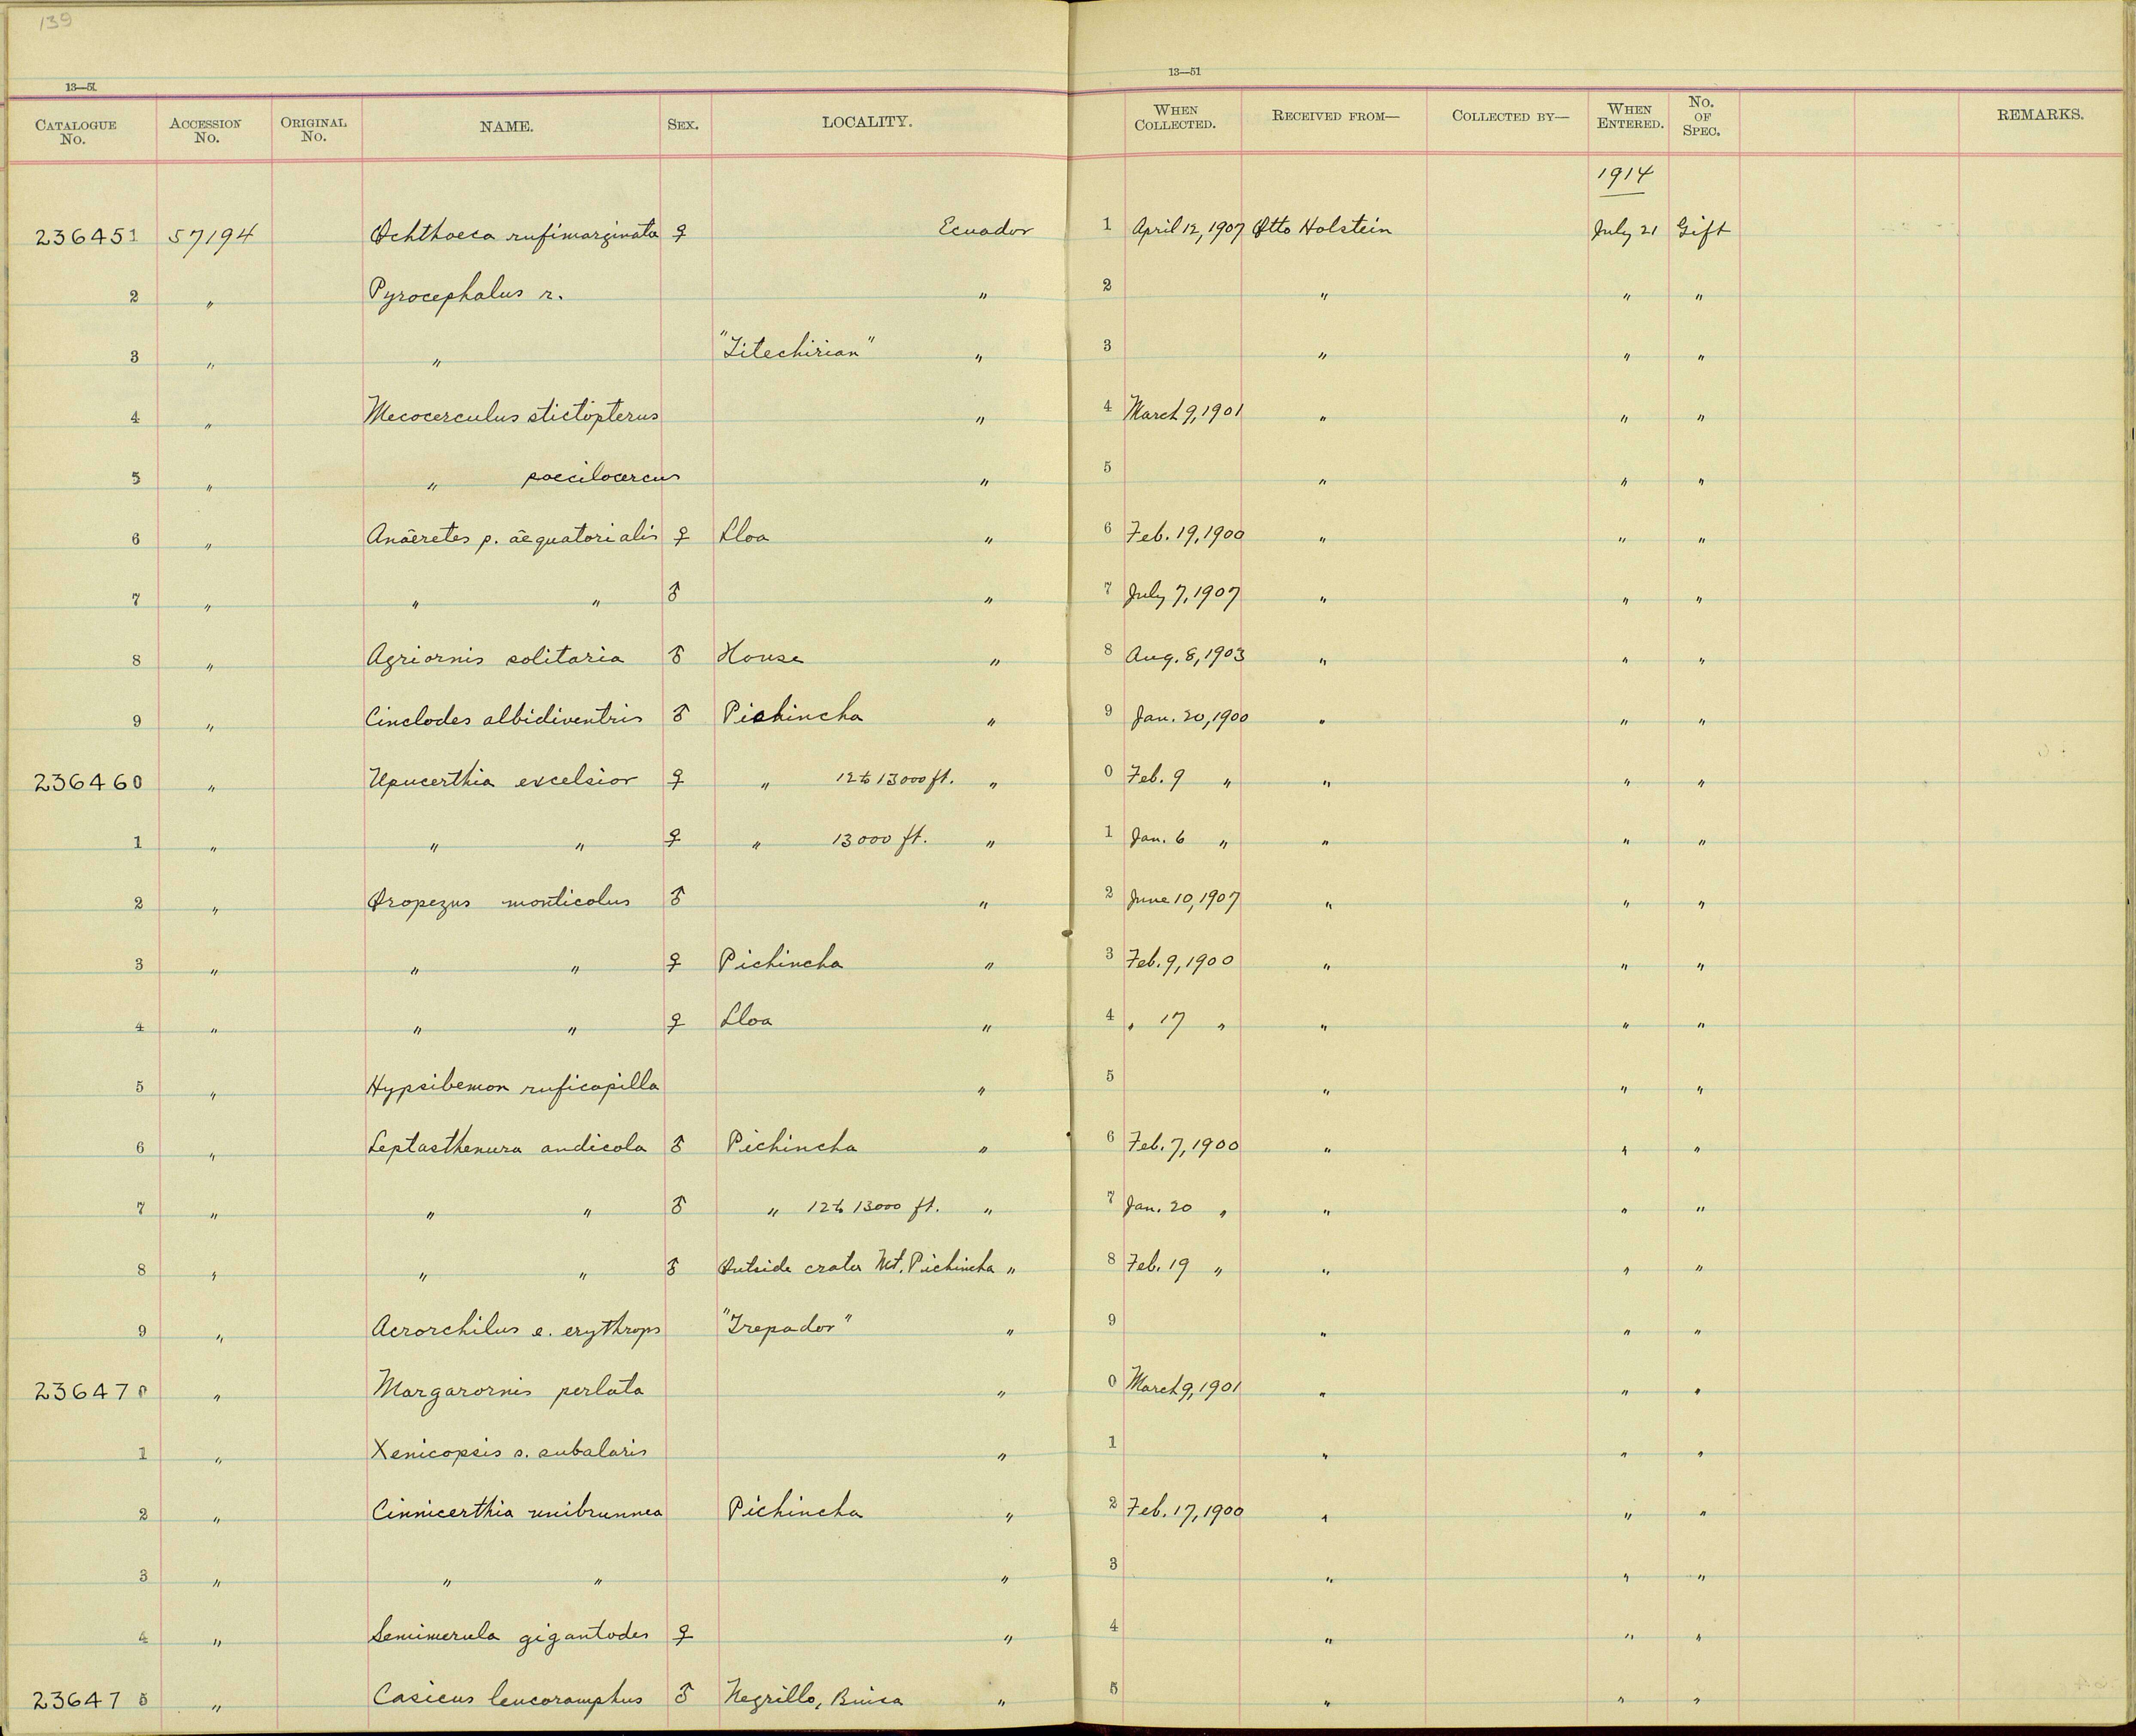 139
13—51 13—51
CATALOGUE No. ACCESSION No. ORIGINAL No. NAME. SEX. LOCALITY. WHEN COLLECTED. RECEIVED FROM— COLLECTED BY— WHEN ENTERED. No. OF SPEC. REMARKS.
1914
236451 57194 Ochthoeca rufimarginata ♀ Ecuador 1 April 12, 1907 Otto Holstein July 21 Gift
2 " Pyrocephalus r. " 2 " " "
3 " " "Titechirian" " 3 " " "
4 " Mecocerculus stictopterus " 4 March 9, 1901 " " "
5 " " poecilocercus " 5 " " "
6 " Anäeretes p. äequatorialis ♀ Lloa " 6 Feb. 19, 1900 " " "
7 " " " ♂ " 7 July 7, 1907 " " "
8 " Agriornis solitaria ♂ House " 8 Aug. 8, 1903 " " "
9 " Cinclodes albidiventris ♂ Pichincha " 9 Jan. 20, 1900 " " "
236460 " Upucerthia excelsior ♀ " 12 to 13000 ft. " 0 Feb. 9 " " " "
1 " " " ♀ " 13000 ft. " 1 Jan. 6 " " " "
2 " Oropezus monticolus ♂ " 2 June 10, 1907 " " "
3 " " " ♀ Pichincha " 3 Feb. 9, 1900 " " "
4 " " " ♀ Lloa " 4 " 17 " " " "
5 " Hypsibemon ruficapilla " 5 " " "
6 " Leptasthenura andicola ♂ Pichincha " 6 Feb. 7, 1900 " " "
7 " " " ♂ " 12 to 13000 ft. " 7 Jan. 20 " " " "
8 " " " ♂ Outside crater Mt. Pichincha " 8 Feb. 19 " " " "
9 " Acrorchilus e. erythrops "Trepador" " 9 " " "
236470 " Margarornis perlata " 0 March 9, 1901 " " "
1 " Xenicopsis s. subalaris " 1 " " "
2 " Cinnicerthia unibrunnea Pichincha " 2 Feb. 17, 1900 " " "
3 " " " " 3 " " "
4 " Semimerula gigantodes ♀ " 4 " " "
236475 " Casicus leucoramphus ♂ Negrillo, " 5 " " "